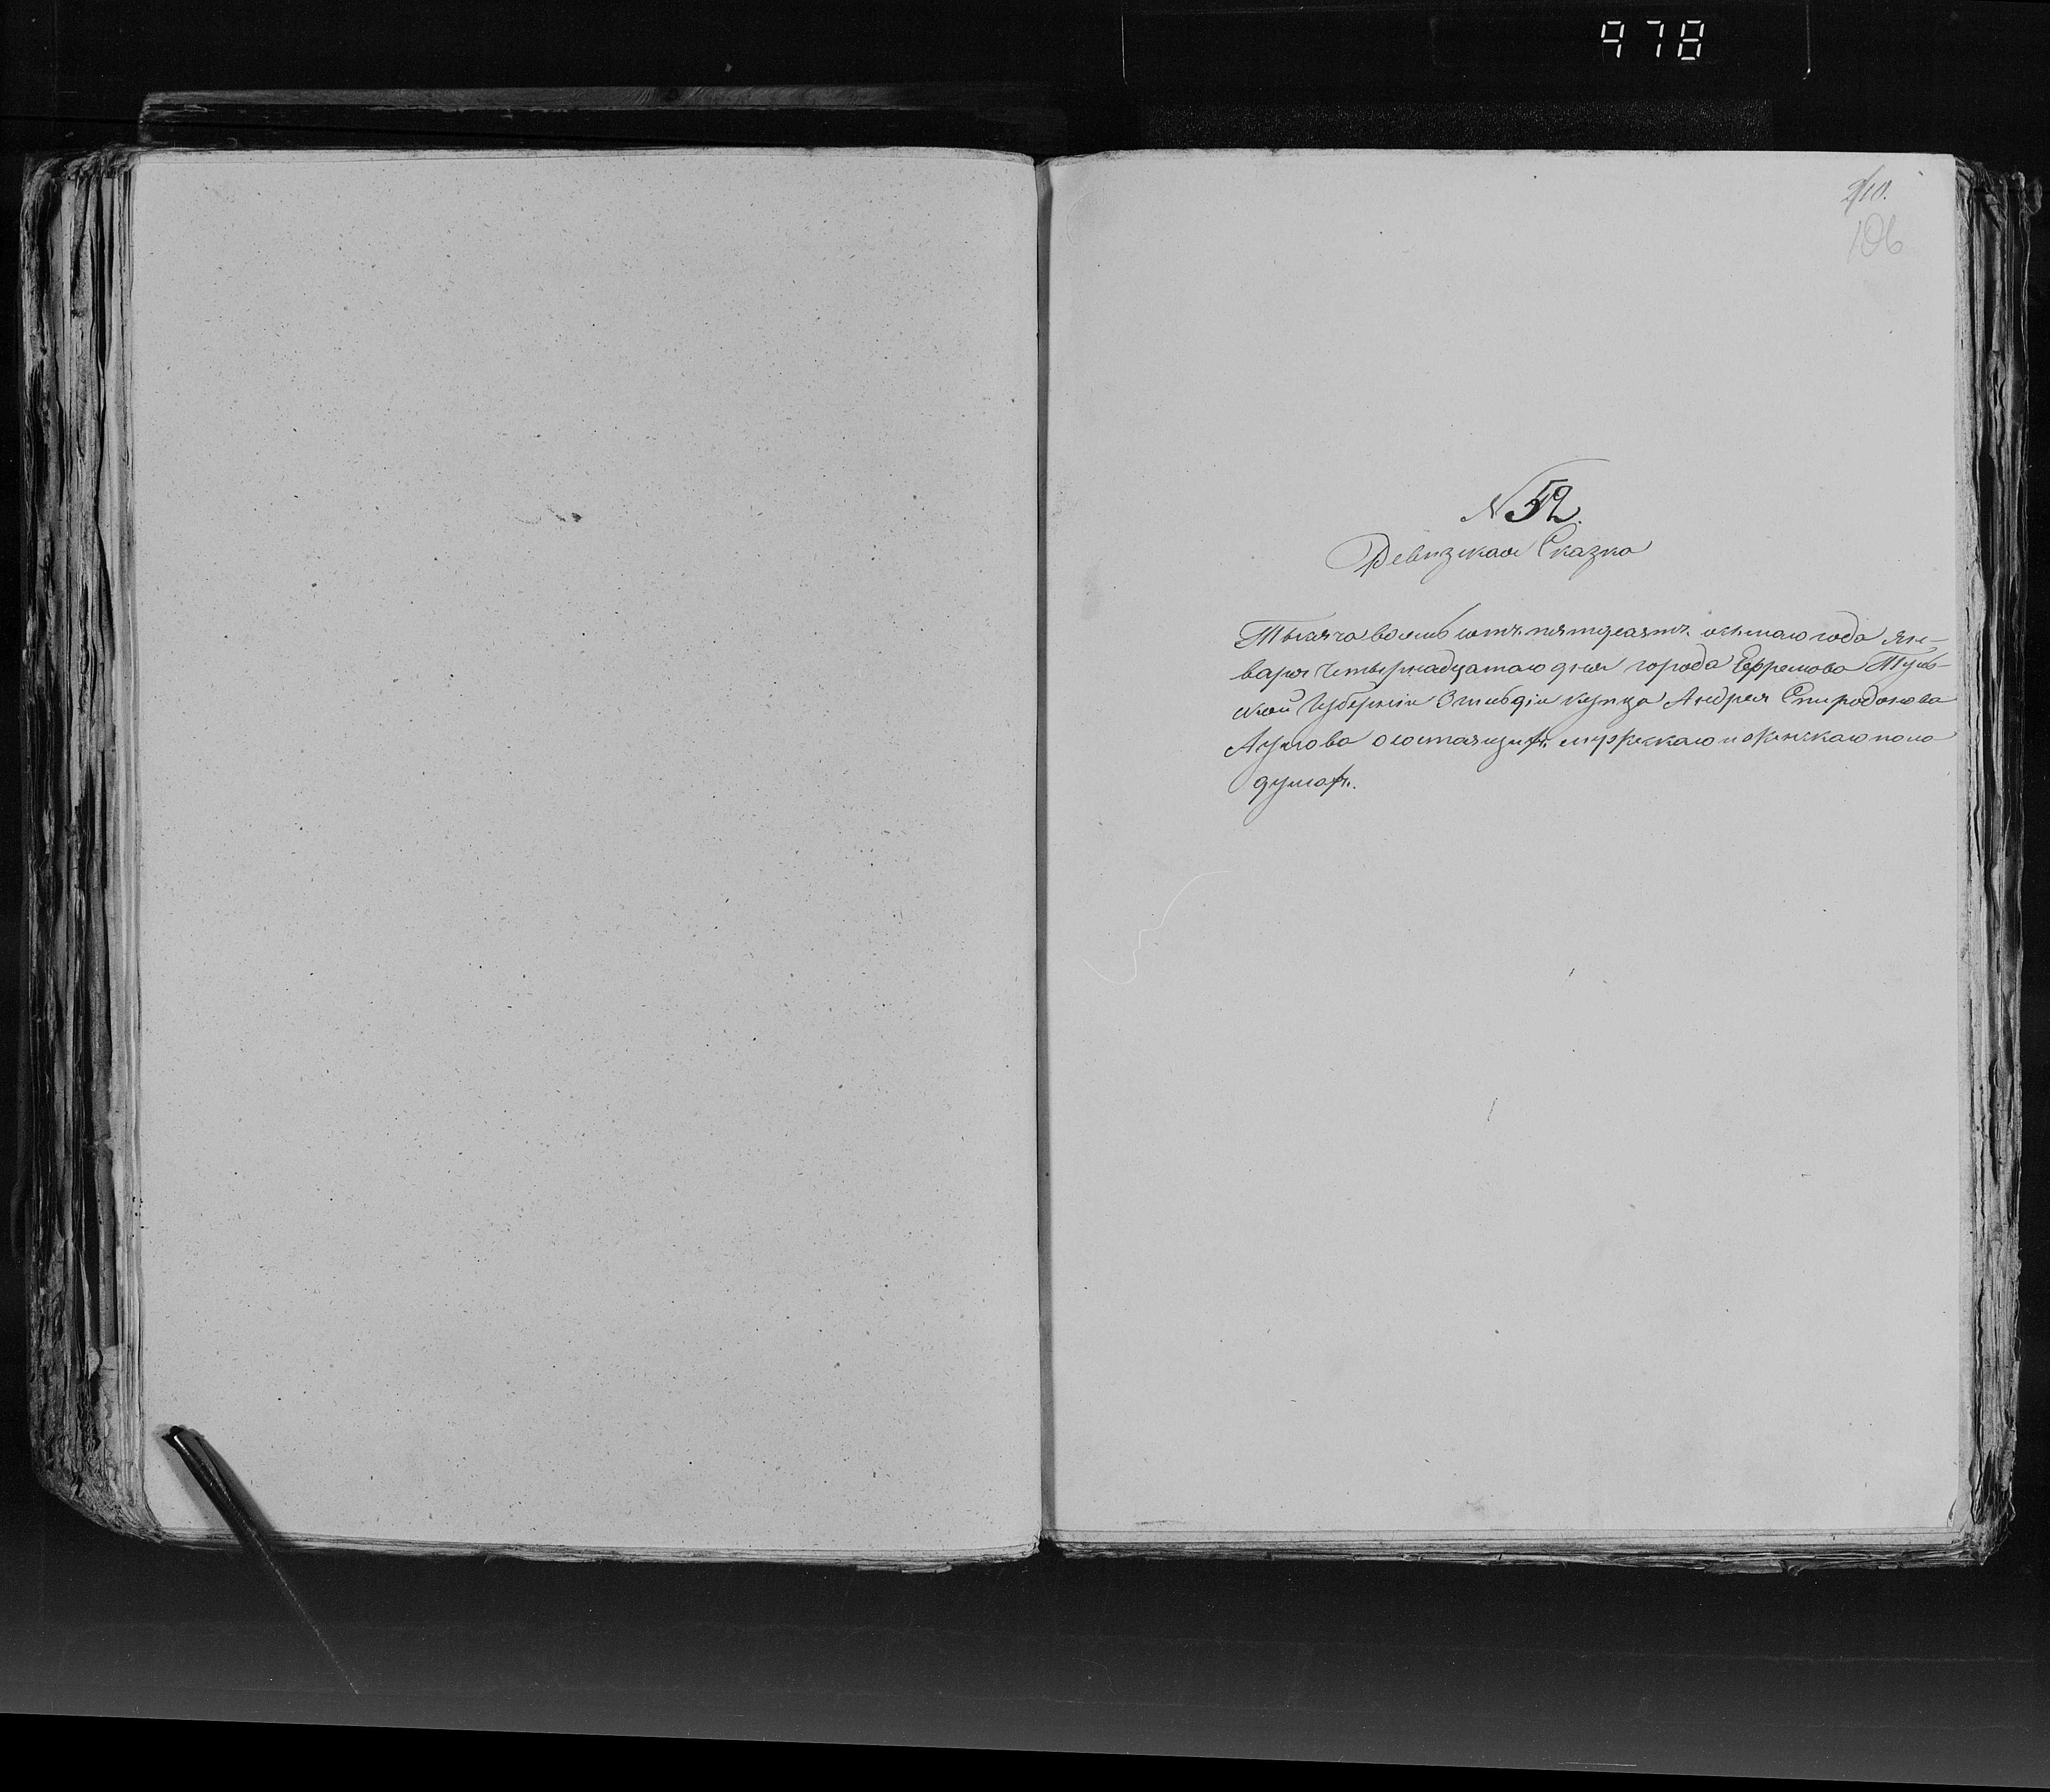 978
106
№ 52.
Ревизская Сказка
Тысяча восемь сотъ пятдесятъ осьмаго года Ян-
варя Четырнадцатаго дня города Ефремова Туль-
ской Губерніи 3 гильдіи купца Андрея Спиродонова
о состаящихъ мужескаго и женскаго пола
душахъ.